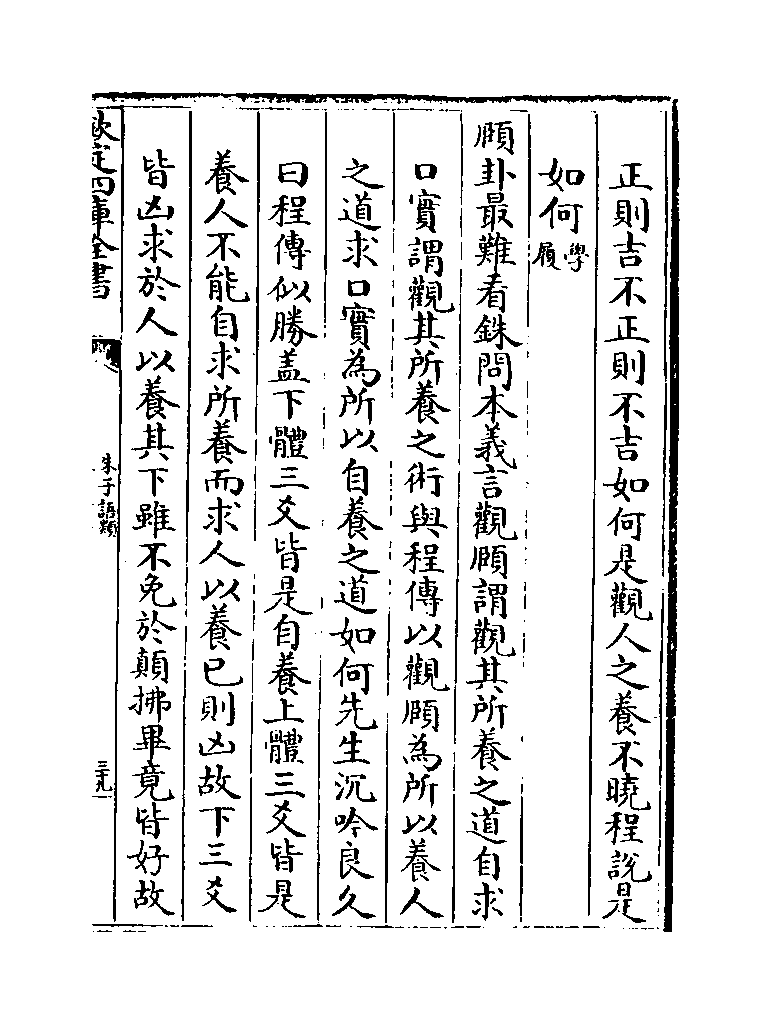 正則吉不正則不吉如何是觀人之養不曉程說是
如何學履
頤卦最難看銖問本義言觀頤謂觀其所養之道自求
口實謂觀其所養之術與程傳以觀頤為所以養人
之道求口實為所以自養之道如何先生沉吟良久
曰程傳似勝盖下體三爻皆是自養上體三爻皆是
養人不能自求所養而求人以養已則凶故下三爻
皆凶求於人以養其下雖不免於顛拂畢竟皆好故
欽定四庫全書
朱子語類
三十九